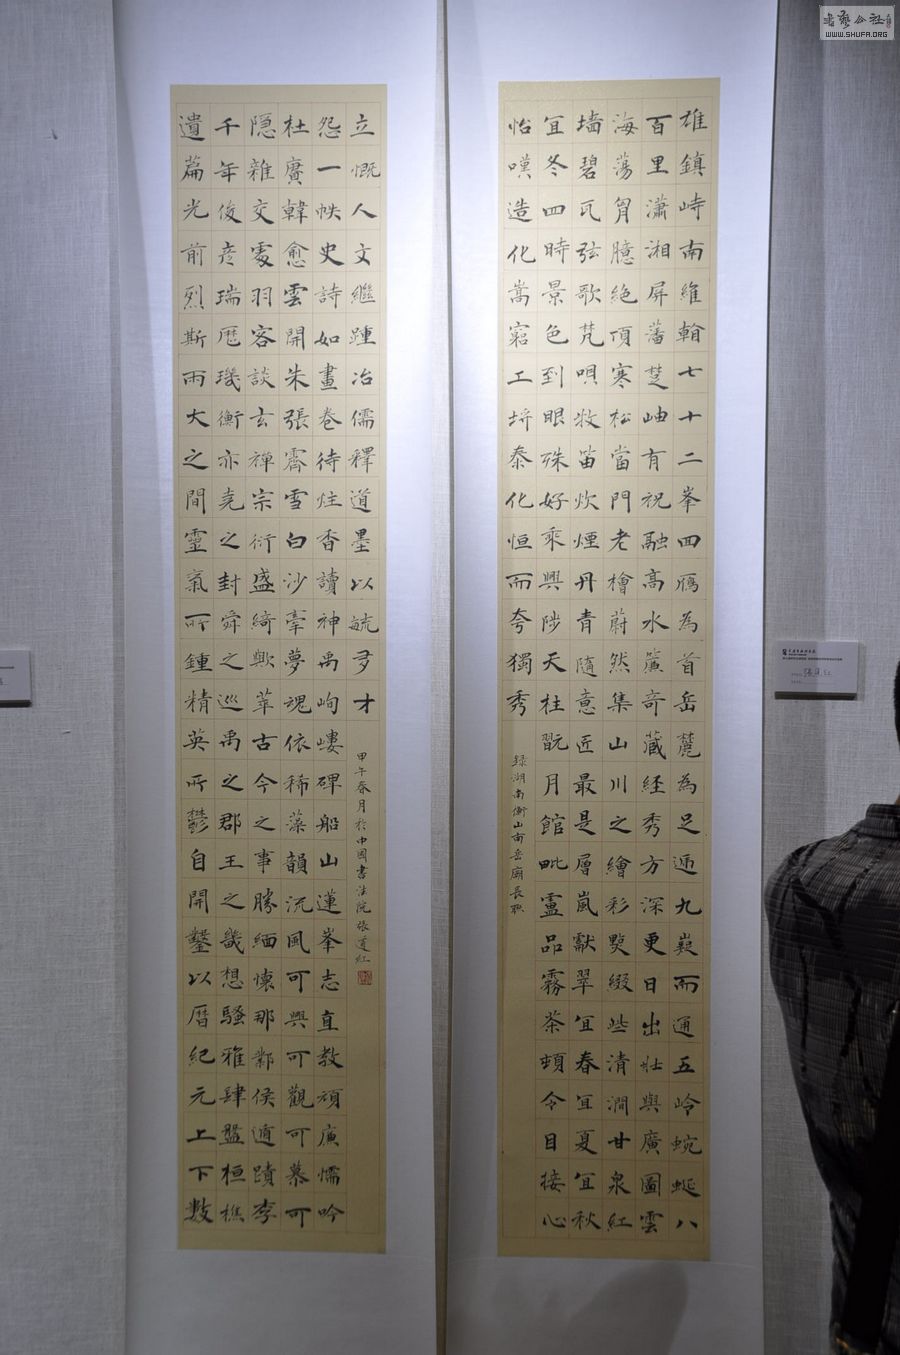 雄鎮峙南維翰七十二峯回鴈為首岳麓為足逦九嶷而通五岭蜿蜒八
百里瀟湘屏藩楚岫有祝融高水簾奇藏经秀方深更日出壯與廣圖雲
海蕩胷臆絕頂寒松當門老檜蔚然集山川之繪彩點綴些清澗甘泉紅
墻碧瓦弦歌梵唄牧笛炊煙丹青隨意近最是層嵐獻翠宜春宜夏宜秋
宜冬四時景色到眼殊好乘興陟天柱翫月館毗盧品霧茶頓令目接心
怡嘆造化嵩窮工垿泰化恒而夸獨秀
録湖南衡山南岳廟長聯
遺篇光前烈斯兩大之間靈氣所鍾精英所鬱自開鑿以曆紀元上下數
千年俊彦瑞曆璣衡亦堯之封舜之巡禹之郡王之畿想騷雅肆盤桓樵
隐雜交處羽客談玄禪宗衍盛綺歟萃古今之事勝緬懷那鄴侯遁蹟李
杜賡韓愈雲開朱張霽雪白沙牽夢魂依稀藻韻流風可興可觀可慕可
怨一帙史詩如畫卷待炷香讀神禹岣嶁碑船山蓮峯志直教頑廉懦吟
立慨人文繼踵冶儒釋道墨以毓多才
甲午春月於中國書法院張道紅
書藝公社
WWW.SHUFA.ORG